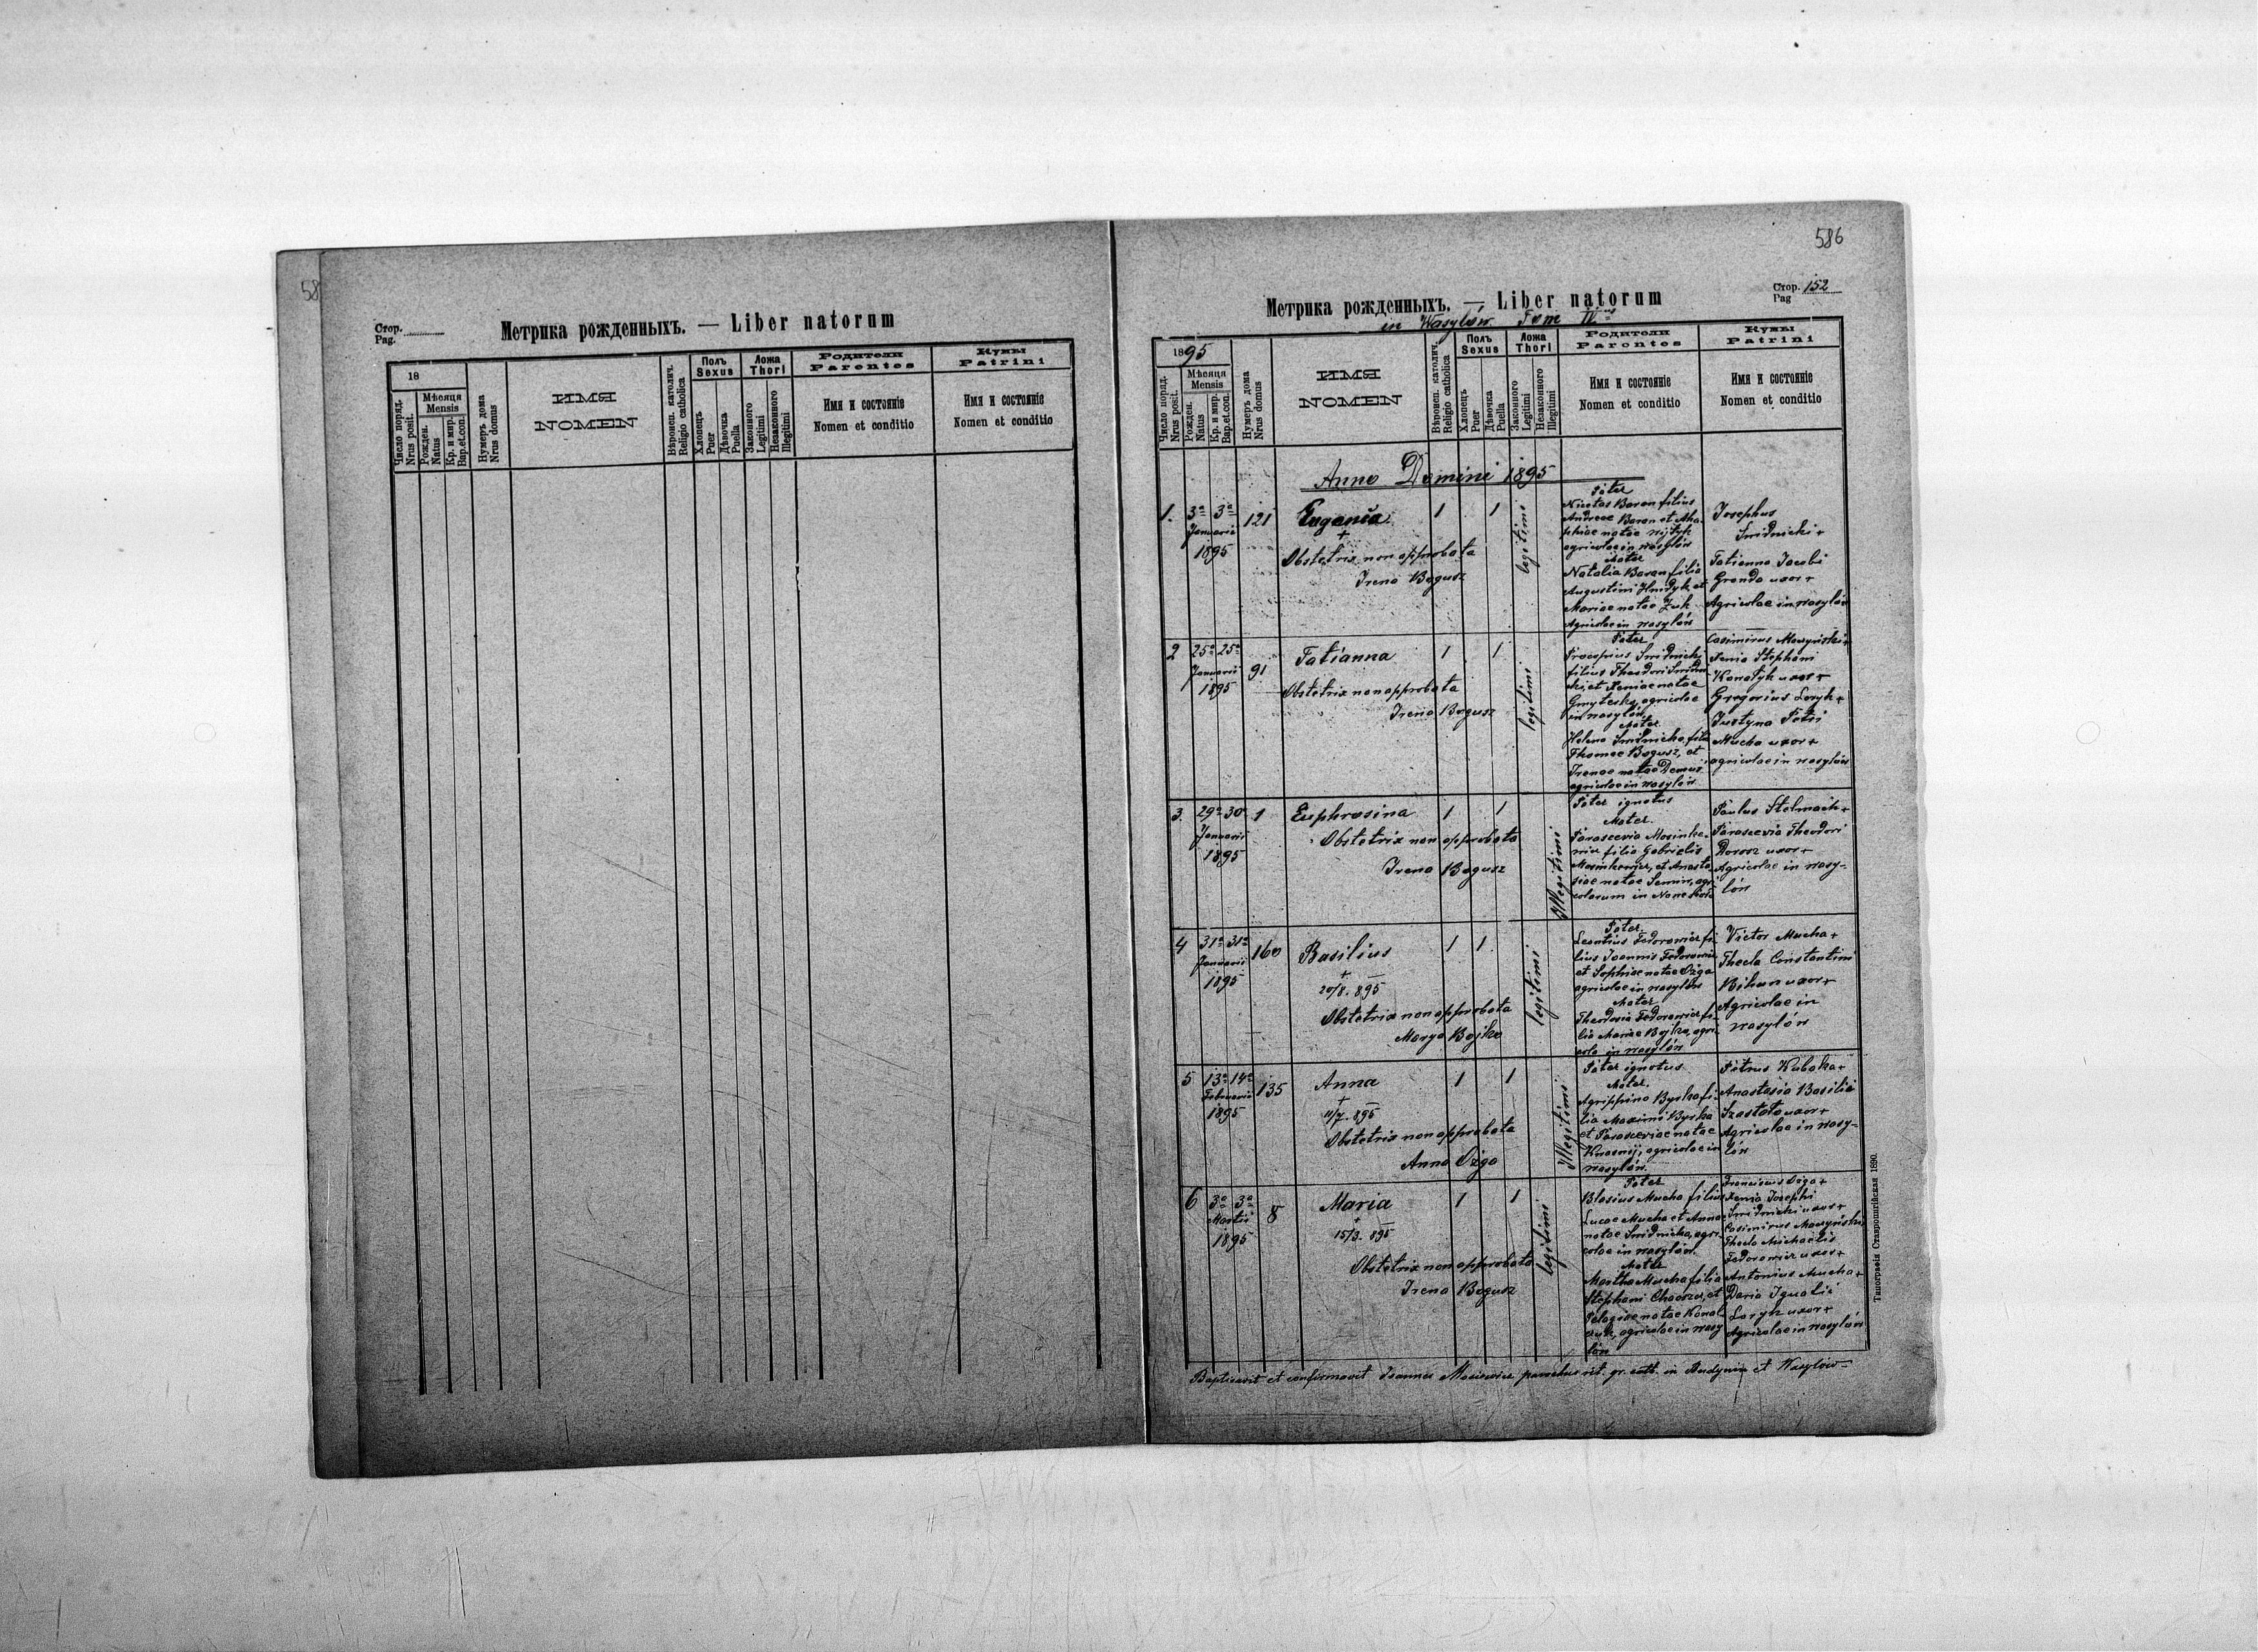 58
Стор.
Pag.
Метрика рожденныхъ. — Liber natorum
18
Число поряд.
Nrus posit.
Мѣсяця
Mensis
Рожден.
Natus
Кр. и мир.
Bap.et.con.
Нумеръ дома
Nrus domus
ИМЯ
NOMEN
Вѣроисп. католич.
Religio catholica
Полъ
Sexus
Хлопецъ
Puer
Дѣвочка
Puella
Ложа
Thori
Законного
Legitimi
Незаконного
Illegitimi
Родители
Parentes
Имя и состояніе
Nomen et conditio
Кумы
Patrini
Имя и состояніе
Nomen et conditio
586
Стор. 152
Pag
Метрика рожденныхъ. — Liber natorum
in Wasylów Tom IV
1895
Число поряд.
Nrus posit.
Мѣсяця
Mensis
Рожден.
Natus
Кр. и мир.
Bap.et.con.
Нумеръ дома
Nrus domus
ИМЯ
NOMEN
Вѣроисп. католич.
Religio catholica
Полъ
Sexus
Хлопецъ
Puer
Дѣвочка
Puella
Ложа
Thori
Законного
Legitimi
Незаконного
Illegitimi
Родители
Parentes
Имя и состояніе
Nomen et conditio
Кумы
Patrini
Имя и состояніе
Nomen et conditio
Anno Domini 1895
1. 3a 3a 121 Eugenia 1 1 legitimi
Januarii
1895
+
Obstetrix non approbata
Irena Bogusz
Pater
Nicetas Baron filius
Andreae Baron et
natae
agricolae in Wasylów
Mater
Natalia Baron filia
Augustini Hnidyk et
Mariae natae Zuk
Agricolae in Wasylów
Josephus
Smidnicki +
Tatianna Jacobi
Granda uxor +
Agricolae in Wasylów
2 25a 25a 91 Tatianna 1 1 legitimi
Januarii
1895
Obstetrix non approbata
Irena Bogusz
Pater
Procopius Smidnicki
filius Theodori
et Xeniae natae
agricolae
in Wasylów
Mater
Helena Smidnicka, filia
Thomae Bogusz, et
Irenae natae Demus
agricolae in Wasylów
Casimirus Maszyński +
Xenia Stephani
uxor +
Gregorius Loryk +
Justyna Petri
Mucha uxor +
agricolae in Wasylów
3. 29a 30a 1 Euphrosina 1 1 Illegitimi
Januarii
1895
Obstetrix non approbata
Irena Bogusz
Pater ignotus
Mater.
Parascevia
filia Gabrielis
et
natae
in
Paulus Stelmach +
Parascevia Theodori
Dorosz uxor +
Agricolae in Wasy-
lów
4 31a 31a 160 Basilius 1 1 legitimi
Januarii
1895
+
20/8. 895
Obstetrix non approbata
Marya Bojko
Pater
Leontius Fedorowicz fi-
lius Joannis Fedorowicz
et Sophiae natae Ożga
agricolae in Wasylów
Mater
Theodosia Fedorowicz fi-
lia Mariae Bojko, agri-
cola in Wasylów
Victor Mucha +
Thecla Constantini
Bihun uxor +
Agricolae in
Wasylów
5 13a 14a 135 Anna 1 1 Illegitimi
Februarii
1895
+
11/7. 895
Obstetrix non approbata
Anna Ożga
Pater ignotus
Mater.
Agrippina Byrka fi-
lia Maximi Byrka
et Parasceviae natae
agricolae in
Wasylów.
Petrus Kubaka +
Anastasia Basilii
Szostak uxor +
Agricolae in Wasy-
lów
6 3a 3a 8 Maria 1 1 legitimi
Martii
1895
+
15/3. 895
Obstetrix non approbata
Irena Bogusz
Pater
Blasius Mucha filius
Lucae Mucha et Annae
natae Smidnicka, agri-
colae in Wasylów.
Mater
Martha Mucha filia
Stephani et
Pelagiae natae Kowal-
czuk, agricolae in Wasy-
lów
Franciscus Ożga +
Xenia Josephi
Smidnicki uxor +
Casimirus Maszyński
Thecla Michaelis
Fedorowicz uxor +
Antonius Mucha +
Daria Ignatii
Loryk uxor +
Agricolae in Wasylów
Baptisavit et confirmavit Joannes parochus rit. gr. cath. in et Wasylów
Типографія Ставропигійская 1890.